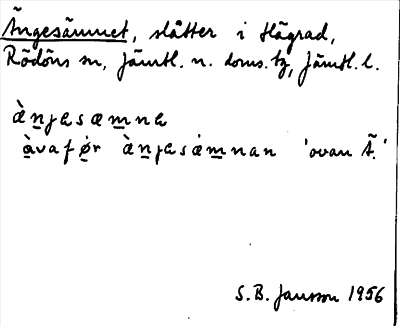 Ängesämnet, slåtter i Hägrad,
Rödöns sn, Jämtl. n. doms. tg, Jämtl. l.
àn̲jɐsæm̲nɐ
àvafø̀r àn̲jɐsæ̀m̲nan 'ovan Ä.'
S.B. Jansson 1956